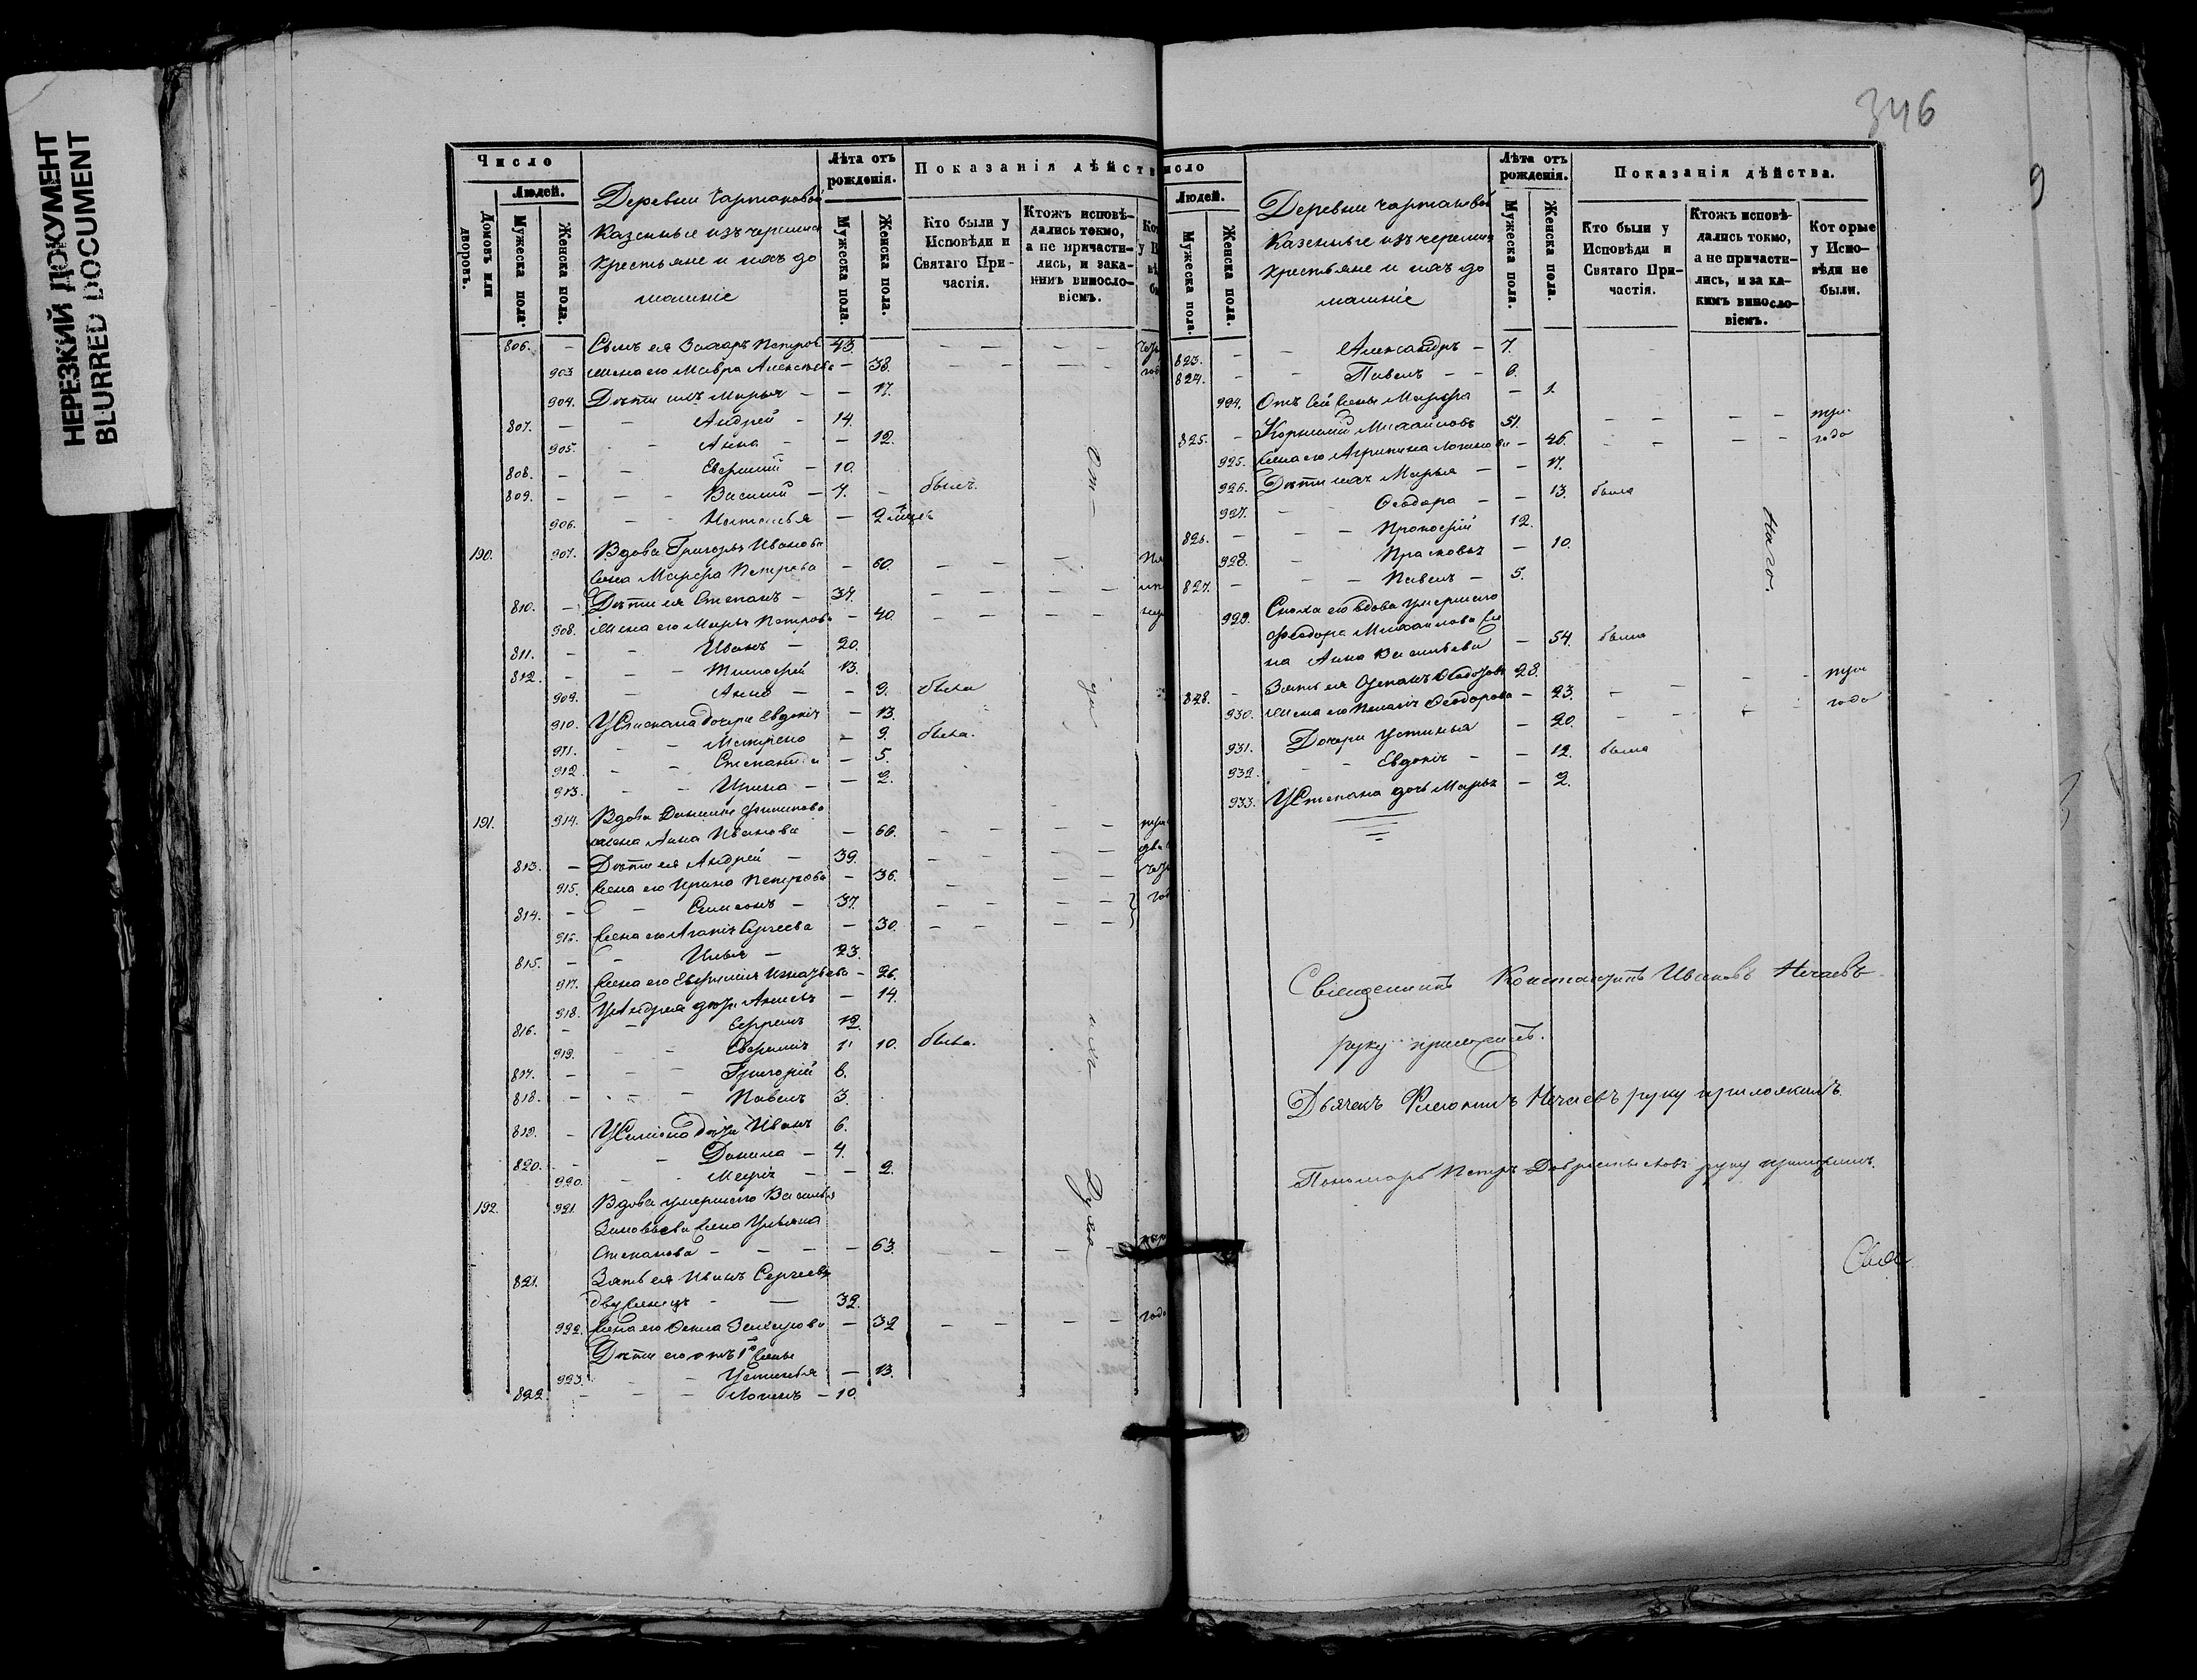 НЕРЕЗКИЙ ДОКУМЕНТ
BLURRED DOCUMENT
Число
Людей.
Домовъ или дворовъ.
Мужеска пола.
Женска пола.
Деревни Чартановой
Казенные изъ черемисъ
крестьяне и ихъ до
машніе
Лѣта отъ рожденія.
Мужеска пола.
Женска пола.
Показанія дѣйств
Кто были у Исповѣди и Святаго Причастія.
Ктожъ исповѣдались токмо, а не причастились, и какимъ винословіемъ.
806. – Сынъ ея Захаръ Петровъ 43.
903. жена его Мавра Алексѣева – 38.
904. Дѣти ихъ Марья – – 17.
807. – – Андрей – 14.
905. – – Анна – – 12.
808. – – Евфимій – 10.
809. – – – Василій – 7. – былъ.
906. – – Наталья – 2
190. 907. Вдова Григорья Иванова
жена Марфа Петрова – 60.
810. – Дѣти ея Степанъ – 37.
908. Жена его Марья Петрова – 40.
811. – – Иванъ – 20.
812. – – Тимофей 13.
909. – Анна – – 9. была
910. У Степана дочери Евдокія – 13.
911. – – Матрена – 9. была.
912. – – Степанида – 5.
913. – – Ирина – – 2.
191. 914. Вдова Данилы Филипова
жена Анна Иванова – 66.
813. – Дѣти ея Андрей – 39.
915. жена его Ирина Петрова – 36.
814. – – Симеонъ – 37.
916. жена его Агапія Сергеева – 30.
815. – – Илья – 23.
917. жена его Евфимія Игнатьева – 26.
918. У Андрея дѣти – 14.
816. – – 12.
919. – – Евфимія 10. была.
817. – – – Григорій 6.
818. – – – Павелъ 3.
819. – У Симеона дѣти Иванъ 6.
820. – – Данила – 4.
920. – – Марія – – 2.
192. 921. Вдова умершаго Василья
Зиновьева жена Ульяна
Степанова – – – – 63.
821. Зять ея Иванъ Сергеевъ
двуженецъ – — 32.
922. жена его Фекла – 32
Дѣти его отъ 1й жены
923. – – Устинья – 13.
822. – – – Логинъ – 10.
От – ца ихъ Духов
346
9
исло
Людей.
Мужеска пола.
Женска пола.
Деревни Чартановой
Казенные изъ черемисъ
крестьяне и ихъ до
машніе
Лѣта отъ рожденія.
Мужеска пола.
Женска пола.
Показанія дѣйства.
Кто были у Исповѣди и Святаго Причастія.
Ктожъ исповѣдались токмо, а не причастились, и за какимъ винословіемъ.
Которые у Исповѣди не были.
823. – – Александръ – 7.
824. – – Павелъ – – 6.
994. Отъ сей жены Марфа – 1.
825. – Корнилій Михайловъ 51. – – – – три
925. жена его Агрипина Логинова – 46. – – – – года
926. Дѣти ихъ Марья – – 17.
927. – – Ѳеодора – – 13. была
826. – – – Прокофій 12.
928. – – Прасковья – 10.
827. – – – Павелъ – 5.
929. Сноха его вдова умершаго
Ѳеодора Михайлова же
на Анна Васильева – 54. была
828. – Зять ея Степанъ 28. – – – – три
930. Жена его Пелагія Ѳеодорова – 23. – – – года
931. Дочери Устинья – 20.
932. – – Евдокія – – 12. была
933. У Степана дочь Марья – 2.
наго.
Священникъ Константинъ Ивановъ Нечаевъ
руку приложилъ.
Дьячекъ Филимонъ Нечаевъ руку приложилъ.
Пономарь Петръ Добросмысловъ руку приложилъ.